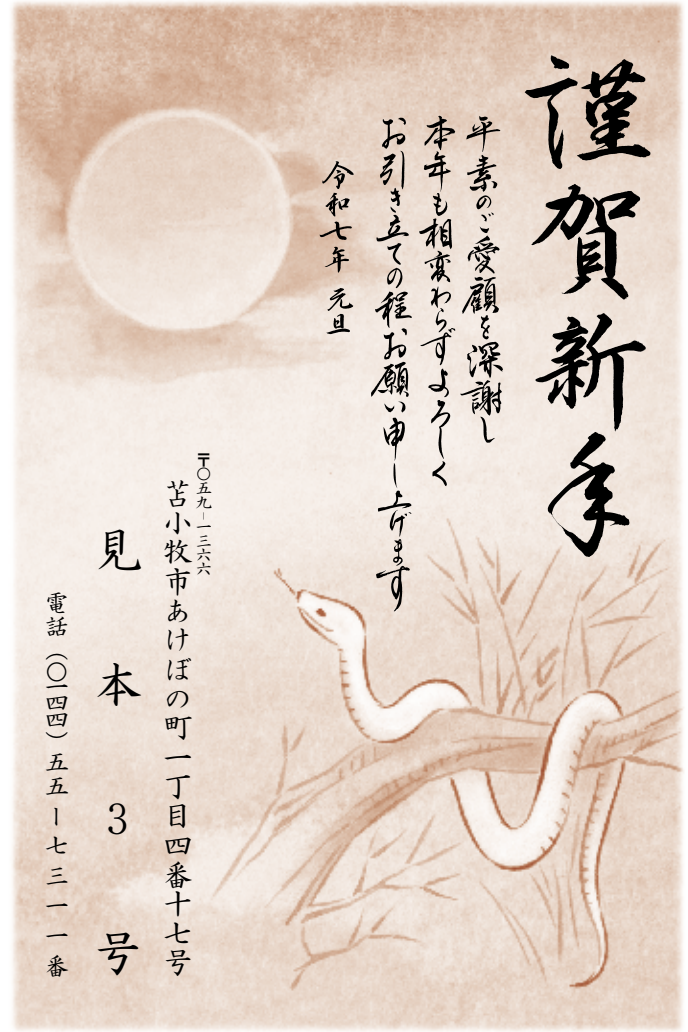 謹賀新年
平素のご愛顧を深謝し
本年も相変わらずよろしく
お引き立ての程お願い申し上げます
令和七年 元旦
〒〇五九-一三六六
苫小牧市あけぼの町一丁目四番十七号
見本3号
電話(〇一四四)五五-七三一一番